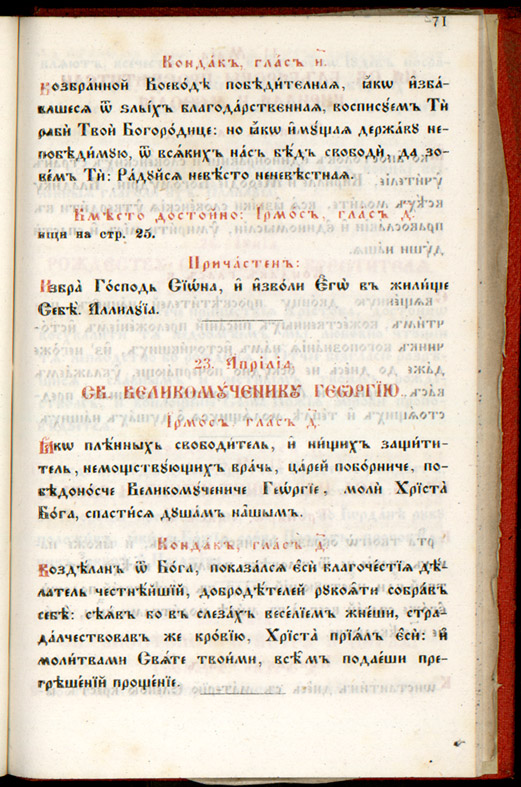 71
Конда́къ, гла́съ и҃.
Возбра́нной Воево́дѣ побѣди́тельная, ꙗ҆́кѡ и҆зба́-
вльшеся ѿ ѕлы́хъ благода́рственная, восписꙋ́емъ Тѝ
рабѝ Твоѝ Богоро́дице: но ꙗ҆́кѡ и҆мꙋ́щая держа́вꙋ не-
побѣди́мꙋю, ѿ вся́кихъ на́съ бѣ́дъ свободѝ, да зо-
ве́мъ Тѝ: Ра́дꙋйся невѣ́сто неневѣ́стная.
Вмѣ́сто досто́йно: І҆рмо́съ, гла́съ д҃.
ищи на стр. 25.
Прича́стенъ:
И҆збра̀ Го́сподь Сїѡ́на, и҆ и҆зво́ли Є҆го̀ въ жили́ще
Себѣ̀. А҆ллилꙋ́їа.
23. Апрі́лїа
СВ. ВЕЛИКОМꙊЧЕНИКꙊ ГЕѠРГІЮ
І҆рмо́съ, гла́съ д҃.
Ꙗ҆́кѡ плѣ́нныхъ свободи́тель, и҆ ни́щихъ защи́ти-
тель, немощствꙋ́ющихъ вра́чь, царе́й побо́рниче, по-
бѣдоно́сче Великомꙋ́чениче Гео́ргїе, молѝ Хрїста̀
Бо́га, спасти́ся дꙋша́мъ на́шымъ.
Конда́къ, гла́съ д҃.
Воздѣ́ланъ ѿ Бо́га, показа́лся є҆сѝ благоче́стїя дѣ́-
латель честнѣ́йшїй, добродѣ́телей рꙋкоя́ти собра́въ
себѣ̀: сѣ́явъ бо въ слеза́хъ весе́лїемъ жне́ши, стра-
да́лчествовавъ же кро́вїю, Хрїста̀ прїя́лъ є҆сѝ: и҆
моли́твами Свя́те твои́ми, всѣ́мъ подае́ши пре-
грѣше́нїй проще́нїе.